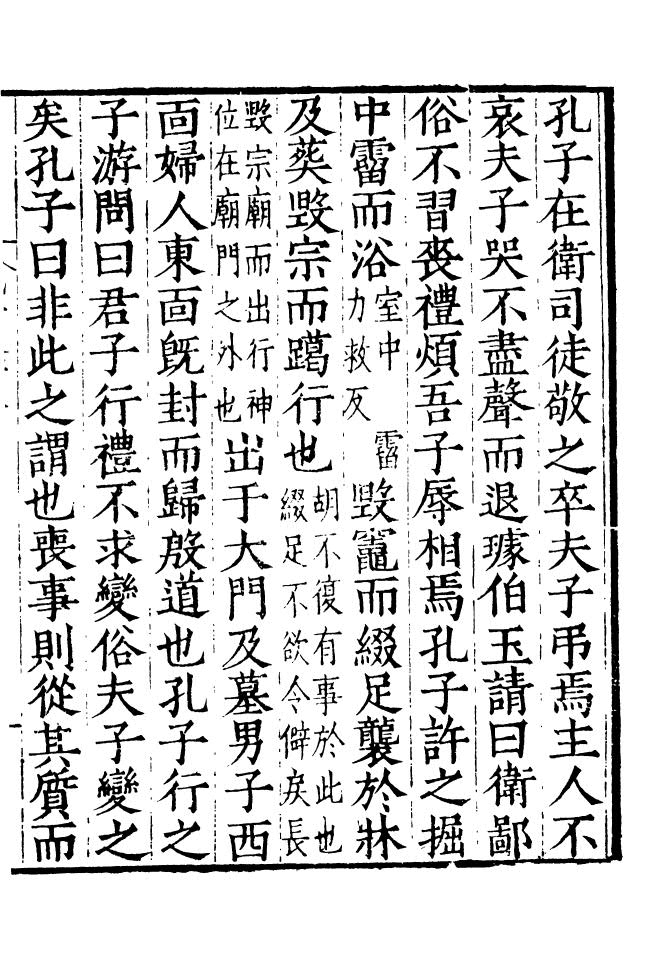 孔子在衛司徒敬之卒夫子吊焉主人不
哀夫子哭不盡聲而退璩伯玉請曰衛鄙
俗不習喪禮煩吾子辱相焉孔子許之掘
中霤而浴室中霤力救反毀竈而綴足襲於牀
及葬毀宗而躐行也胡不復有事於此也綴足不欲令僻戾長
毀宗廟而出行神位在廟門之外也出于大門及墓男子西
面婦人東面既封而歸殷道也孔子行之
子游問曰君子行禮不求變俗夫子變之
矣孔子曰非此之謂也喪事則從其質而